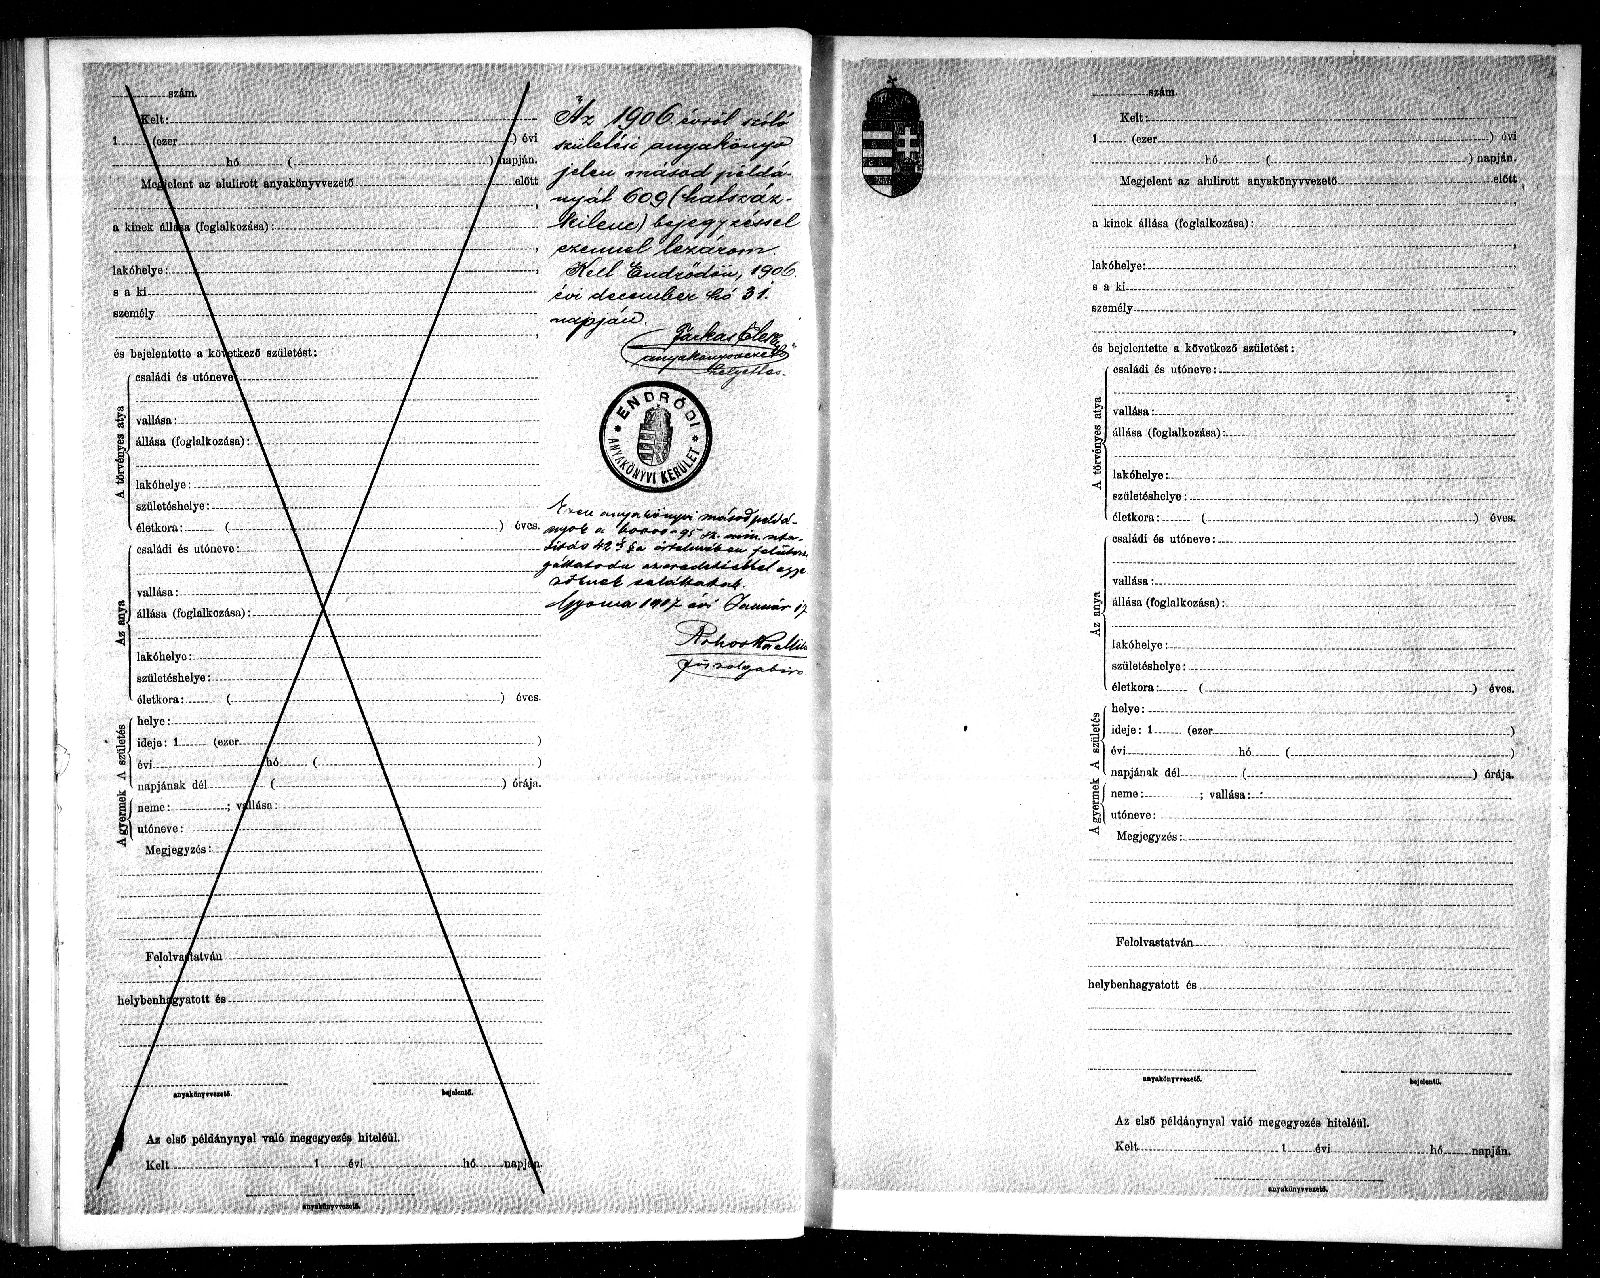 szám.
Kelt:
1 (ezer ) évi
hó ( ) napján.
Megjelent az alulirott anyakönyvvezető előtt
a kinek állása (foglalkozása):
lakóhelye:
s a ki
személy
és bejelentette a következő születést:
A törvényes atya
családi és utóneve:
vallása:
állása (foglalkozása):
lakóhelye:
születéshelye:
életkora: ( ) éves.
Az anya
családi és utóneve:
vallása:
állása (foglalkozása):
lakóhelye:
születéshelye:
életkora: ( ) éves.
A születés
helye:
ideje: 1 (ezer )
évi hó ( )
napjának dél ( ) órája.
A gyermek
neme: ; vallása:
utóneve:
Megjegyzés:
Felolvastatván
helybenhagyatott és
anyakönyvvezető. bejelentő.
Az első példánynyal való megegyezés hiteléül.
Kelt 1 évi hó napján.
anyakönyvvezető.
Az 1906 évről szóló
születési anyakönyv
jelen másod példá-
nyát 609 (hatszáz-
kilenc) bejegyzéssel
ezennel lezárom.
Kelt Endrődön, 1906.
évi december hó 31.
napján.
Farkas
anyakönyvvezető
helyettes.
ENDRŐDI
ANYAKÖNYVI KERÜLET
Ezen anyakönyvi másodpéldá-
nyok a 60000-95 sz. min. uta-
sitás 42 § a értelmében felülvizs
gáltatván az eredetiekkel egye
zőknek találtattak.
Gyoma 1907 évi Január 17
főszolgabiró
szám.
Kelt:
1 (ezer ) évi
hó ( ) napján.
Megjelent az alulirott anyakönyvvezető előtt
a kinek állása (foglalkozása):
lakóhelye:
s a ki
személy
és bejelentette a következő születést:
A törvényes atya
családi és utóneve:
vallása:
állása (foglalkozása):
lakóhelye:
születéshelye:
életkora: ( ) éves.
Az anya
családi és utóneve:
vallása:
állása (foglalkozása):
lakóhelye:
születéshelye:
életkora: ( ) éves.
A születés
helye:
ideje: 1 (ezer )
évi hó ( )
napjának dél ( ) órája.
A gyermek
neme: ; vallása:
utóneve:
Megjegyzés:
Felolvastatván
helybenhagyatott és
anyakönyvvezető. bejelentő.
Az első példánynyal való megegyezés hiteléül.
Kelt 1 évi hó napján.
anyakönyvvezető.